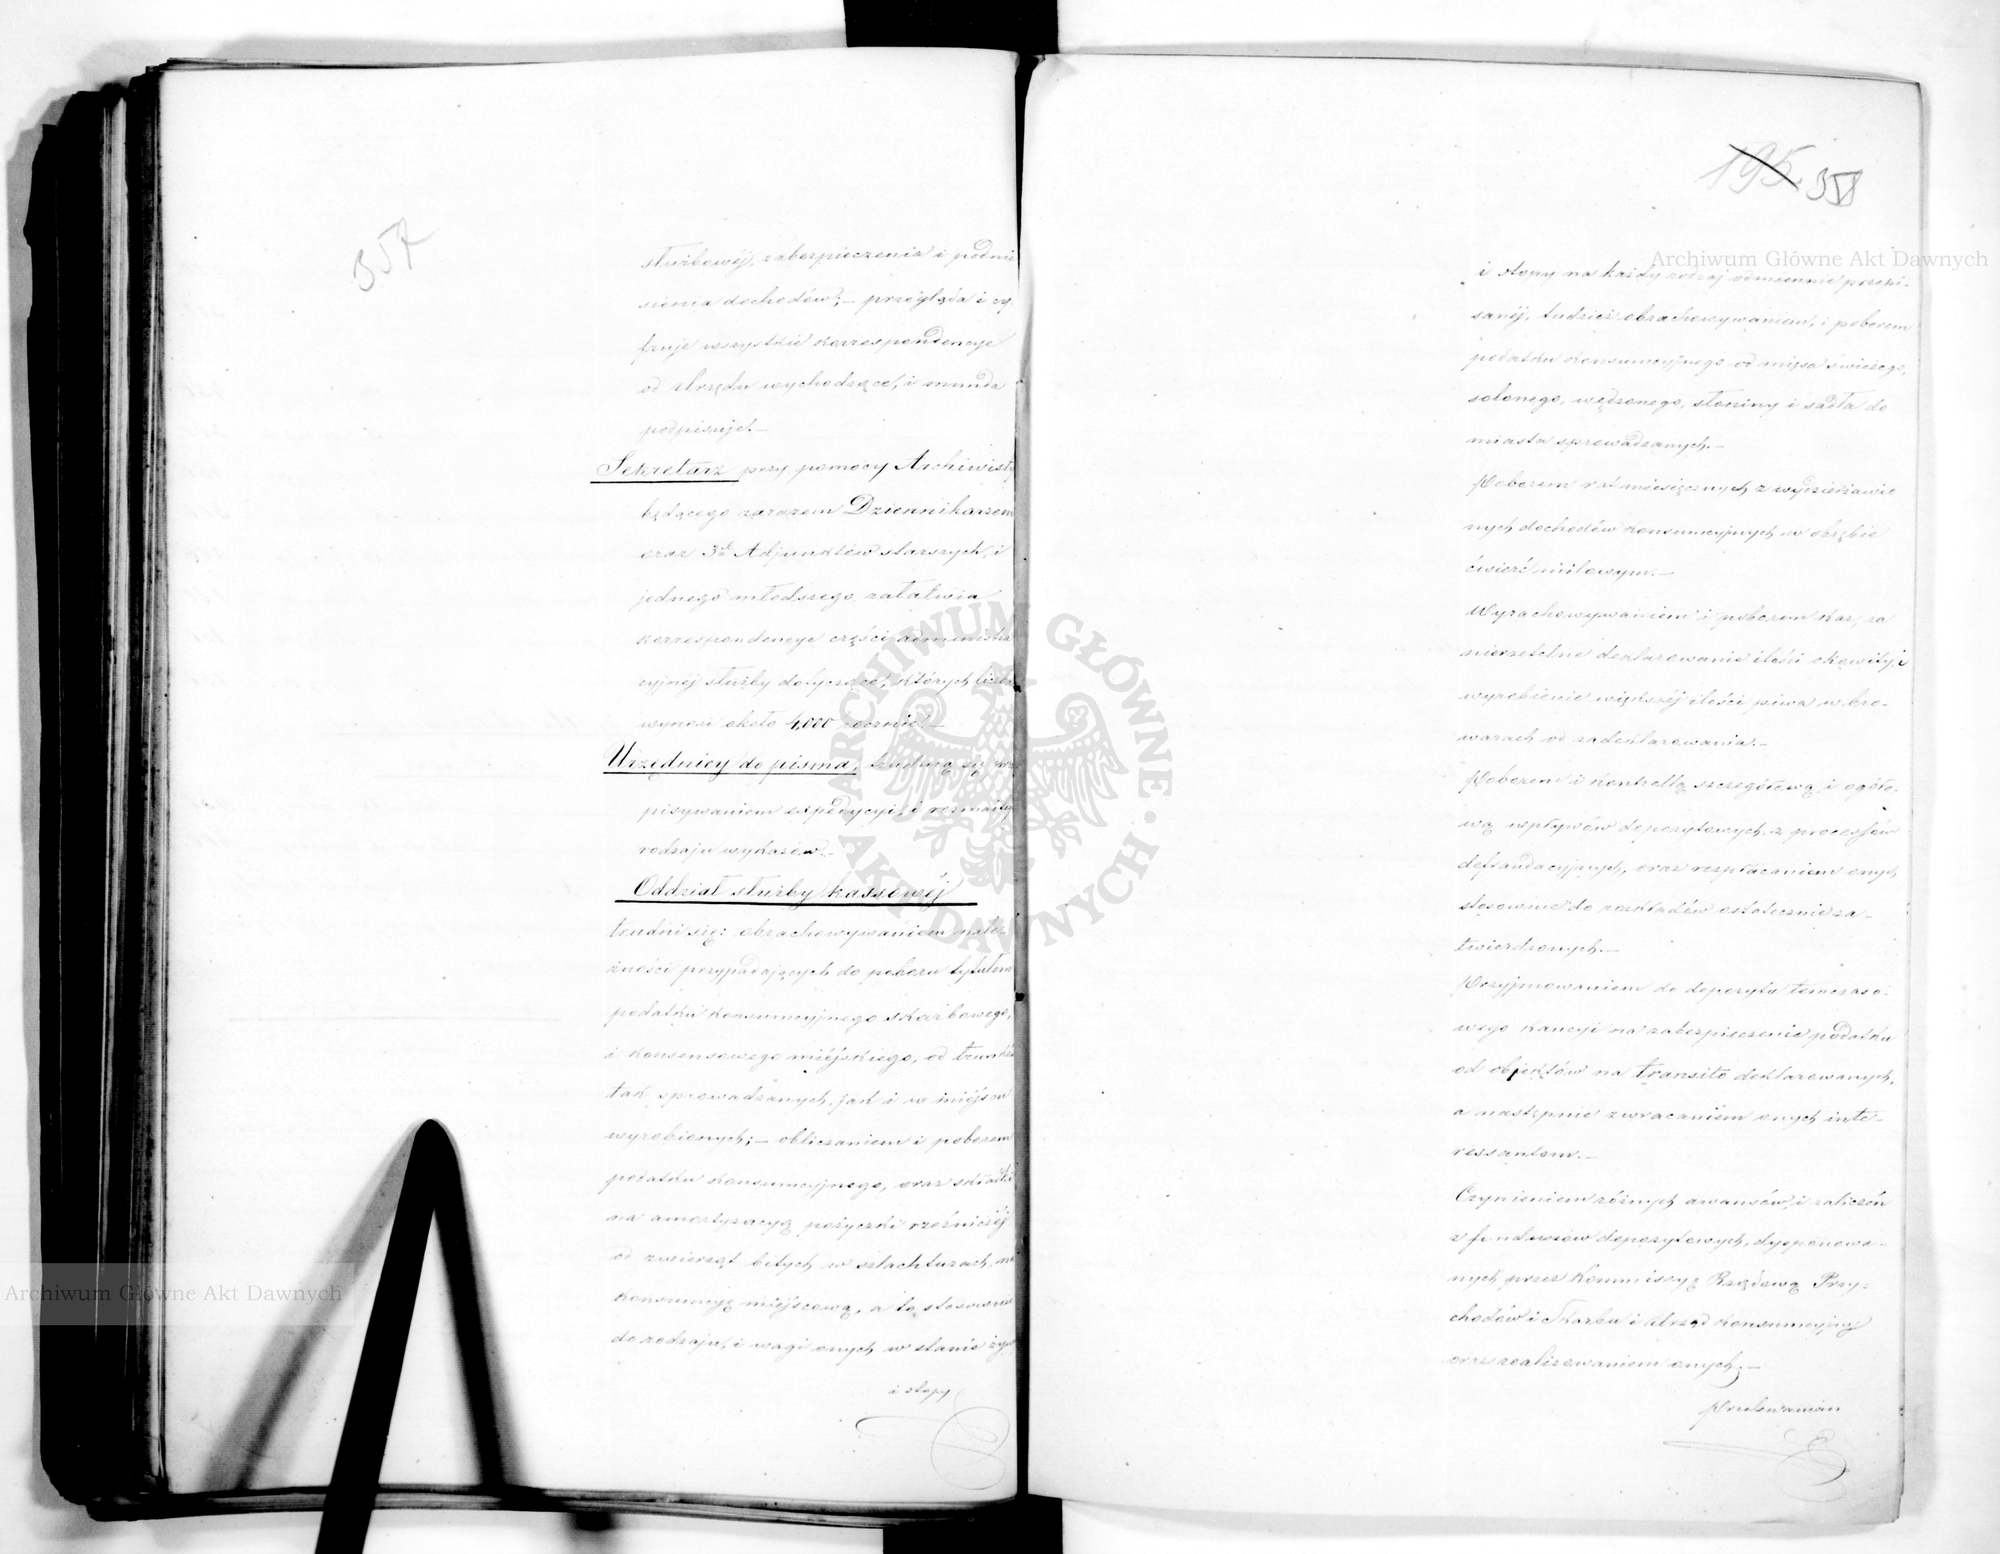 357
służbowéj, zabezpieczenia i podnie
sienia dochodów; — przegląda i cy
fruje wszystkie korrespondencye
od Urzędu wychodzące, i munda
podpisuje. —
Sekretarz przy pomocy Archiwisty
będącego zarazem Dziennikarzem
oraz 3ch Adjunktów starszych, i
jednego młodszego, załatwia
korrespondencye części administra
cyjnéj służby dotyczące, których liczba
wynosi około 4,000 rocznie —
Urzędnicy do pisma, trudnią się prze
pisywaniem expedycyi, i rozmaity
rodzaju wykazów. —
Oddział służby kassowéj
trudni się: obrachowywaniem nale-
żności przypadających do poboru tytułem
podatku konsumcyjnego skarbowego,
i konsensowego miéjskiego, od trunków
tak sprowadzanych, jak i w miéjscu
wyrobionych; — obliczaniem i poborem
podatku konsumcyjnego, oraz składki
na amortyzacyą pożyczki rzeźniczéj
od zwierząt bitych w szlachtuzach, na
konsumcyę miéjscową, a to stosownie
do rodzaju, i wagi onych w stanie żyw
i stopy
195. 358
i stopy na każdy rodzaj odmiennie przepi-
sanéj, tudzież obrachowywaniem, i poborem
podatku konsumcyjnego od mięsa świeżego,
solonego, wędzonego, słoniny i sadła do
miasta sprowadzanych. —
Poborem rat miesięcznych z wydzierżawio
nych dochodów konsumcyjnych w obrębie
ćwierć milowym. —
Wyrachowywaniem i poborem kar, za
nierzetelne deklarowanie ilości okowity, i
wyrobienie większéj ilości piwa w bro-
warach od zadeklarowania. —
Poborem i kontrollą szczegółową i ogóło-
wą wpływów depozytowych z processów
defraudacyjnych, oraz rozpłacaniem onych
stosownie do rozkładów ostatecznie za-
twierdzonych. —
Przyjmowaniem do depozytu tymczaso-
wego kaucyi na zabezpieczenie podatku
od objektów na transito deklarowanych,
a następnie zwracaniem onych inte-
ressantom. —
Czynieniem różnych awansów, i zaliczeń
z funduszów depozytowych, dysponowa-
nych przez Kommissyę Rządową Przy-
chodów i Skarbu i Urząd Konsumcyjny
oraz realizowaniem onych; —
Archiwum Główne Akt Dawnych
Archiwum Główne Akt Dawnych
ARCHIWUM GŁÓWNE AKT DAWNYCH